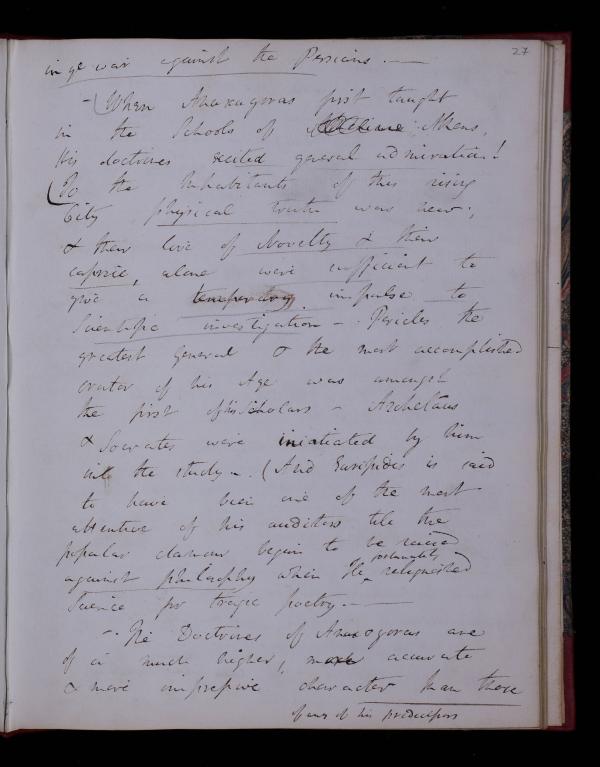 27
in ye war against the Persians. —
- (When Anaxagoras first taught
in the Schools of Athens,
His doctrines excited general admiration!
(To the Inhabitants of this rising
City physical truth was new;
& their love of Novelty & their
caprice, alone were sufficient to
give a temporary impulse to
Scientific investigation -. Pericles the
greatest general & the most accomplished
orator of his Age was amongst
the first of his Scholars - Archelaus
& Socrates were iniatiated by him
into the study -. (And Euripides is said
to have been one of the most
attentive of his auditors till the
popular clamour began to be raised
against philosophy when He fortunately relignished
Science for tragic poetry. —
-. The Doctrines of Anaxogoras are
of a much higher, more accurate
& more impressive character than those
of any of his predecessors